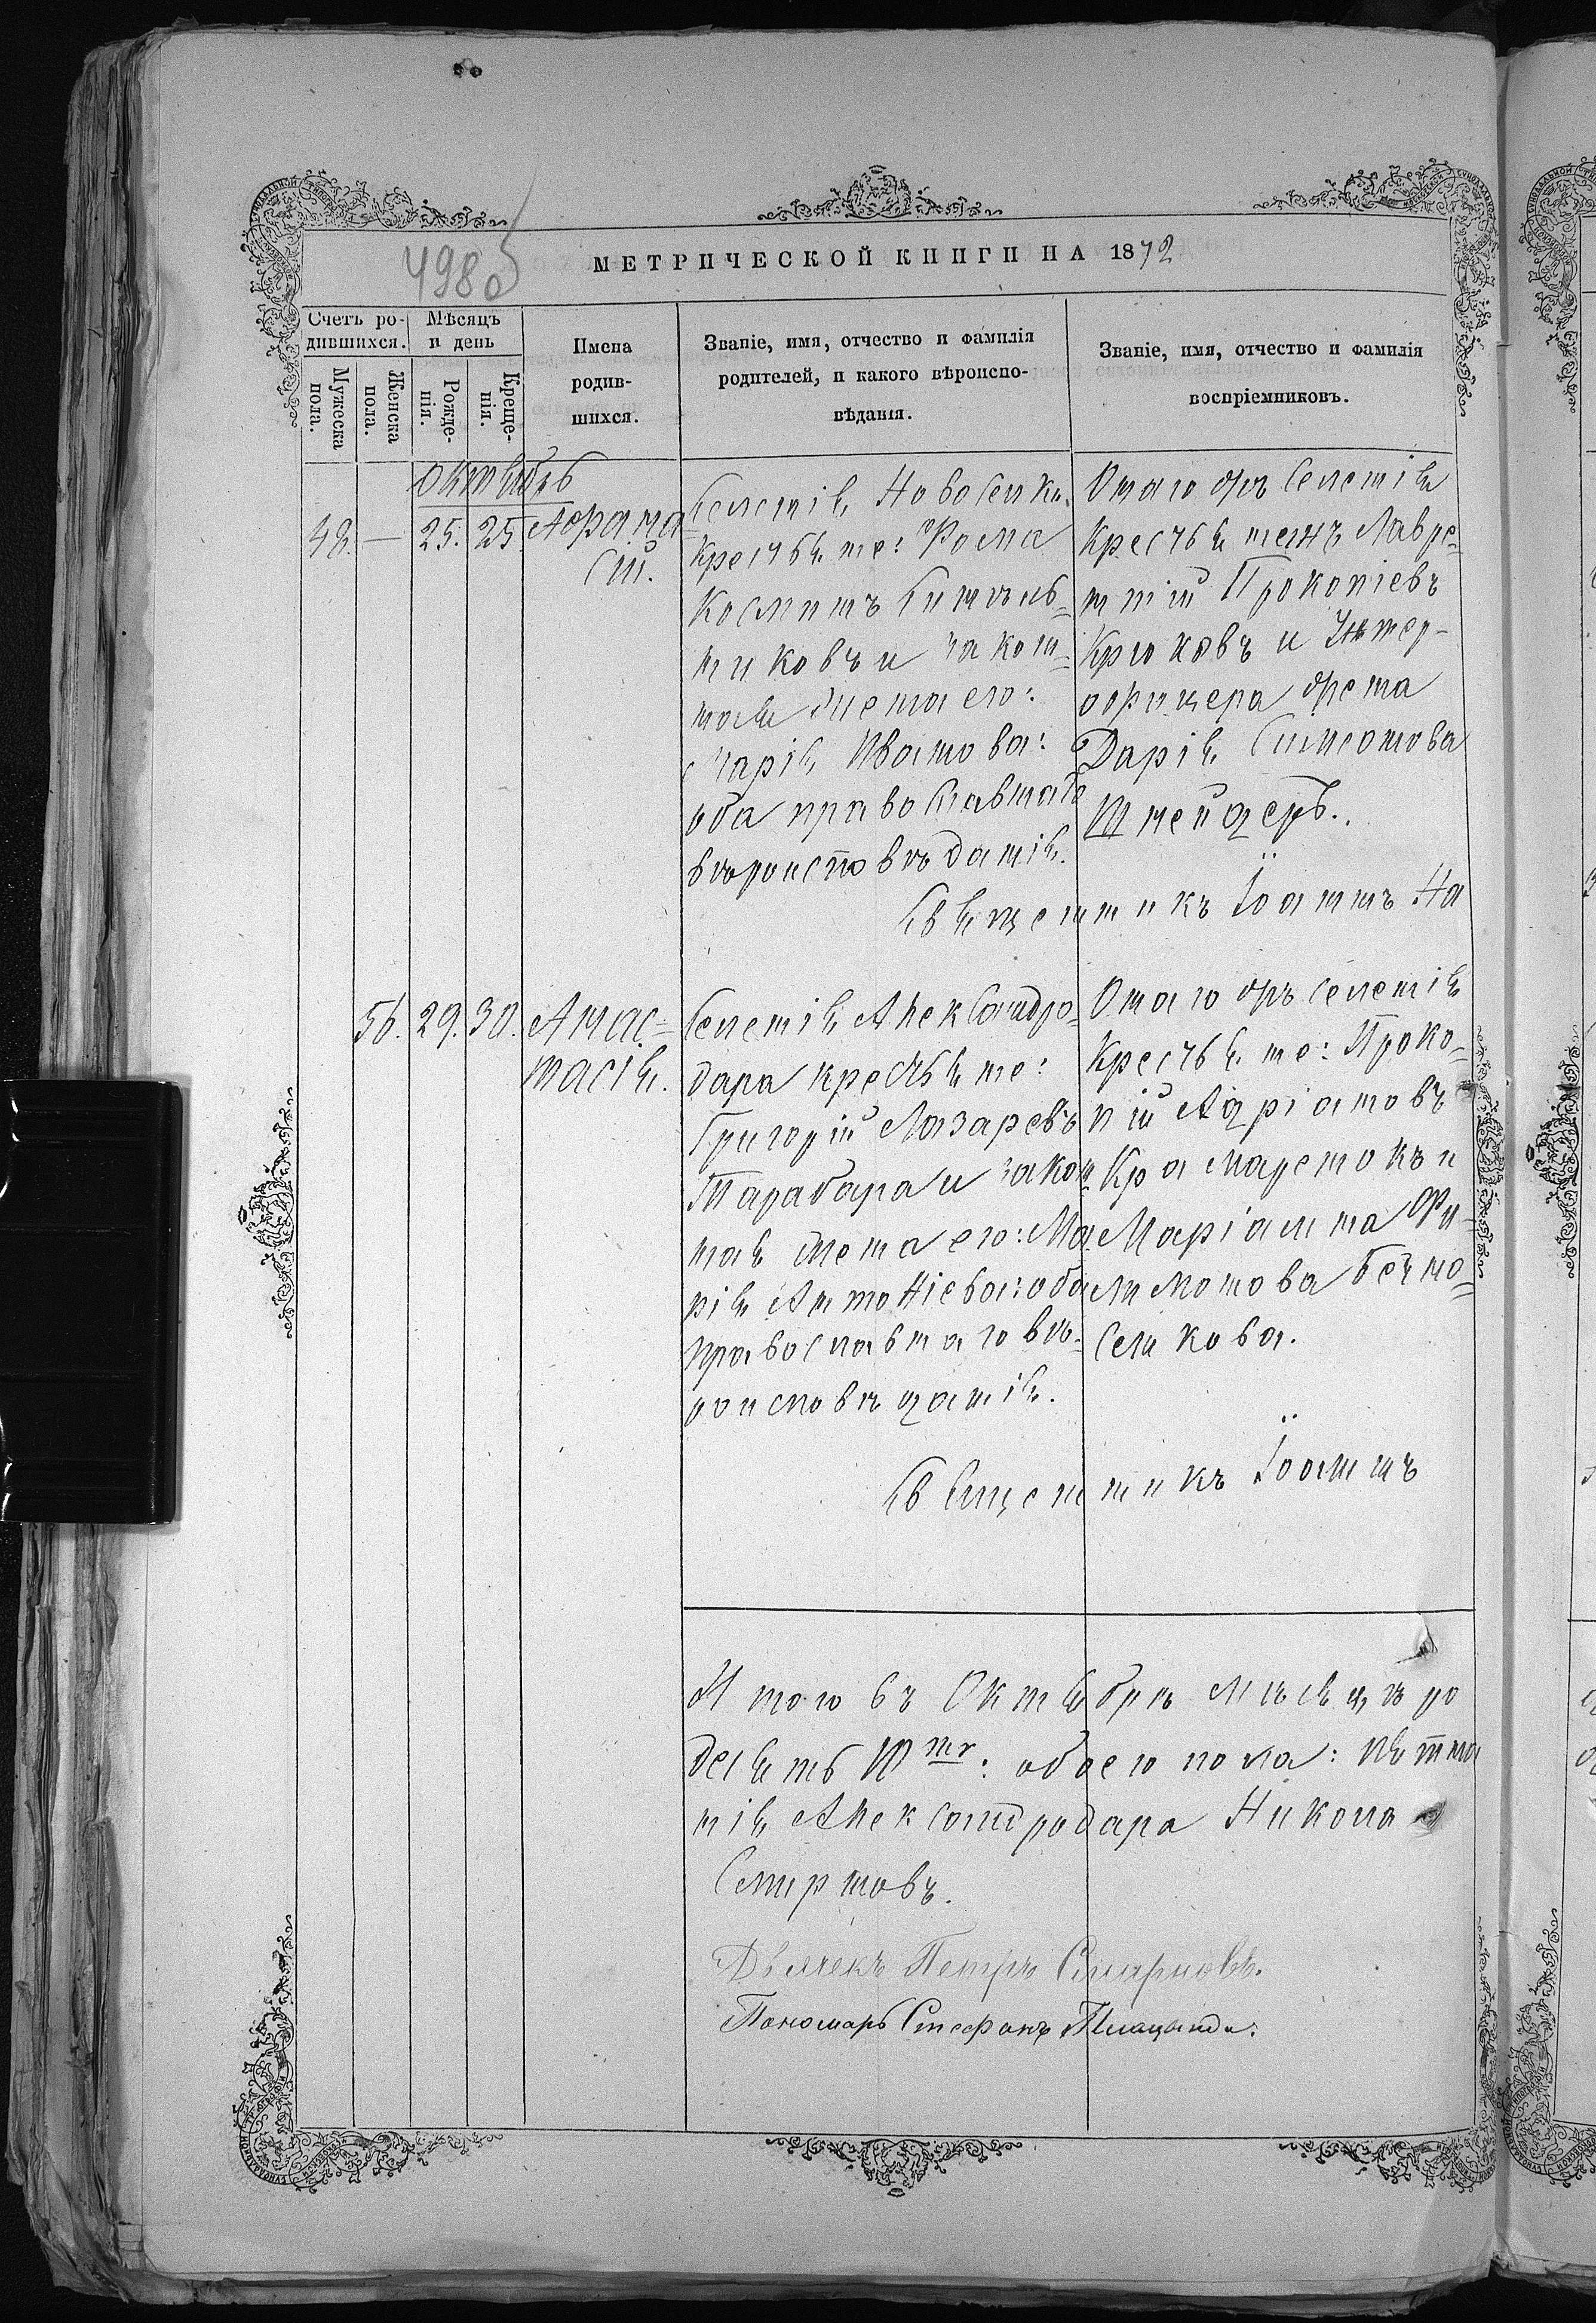 4980
МЕТРИЧЕСКОЙ КНИГИ НА 1872
Счетъ ро-
дившихся.
Мужеска
пола.
Женска
пола.
Мѣсяцъ
и день
Рожде-
нія.
Креще-
нія.
Имена
родив-
шихся.
Званіе, имя, отчество и фамилія
родителей, и какого вѣроиспо-
вѣданія.
Званіе, имя, отчество и фамилія
воспріемниковъ.
Октябрь
48. — 25. 25.
Селенія Новоселки
крестьяне: Фома
Косминъ Ситель=
никовъ и закон=
ная жена его:
Марія Иванова:
оба православнаго
вѣроисповѣданія.
Онаго жъ селенія
крестьянинъ Лавре=
нтій Прокопіевъ
Крюковъ и Унтер-
офицера жена
Дарія Симеонова
Шнейдеръ.
Священникъ Іоаннъ На
56. 29. 30. Анас=
тасія.
Селенія Александро=
дара крестьяне:
Григорій Лазаревъ
Тарабара и закон=
ная жена его: Ма
рія Антоніева: оба
православнаго вѣ=
роисповѣданія.
Онаго жъ селенія
крестьяне: Проко=
пій Адріановъ
Крамаренокъ и
Маріамна Фи=
лимонова
селкова.
Священникъ Іоаннъ
Итого въ Октябрѣ мѣсяцѣ ро
десять 10ть: обоего пола:
нія Александродара Никола
Смирновъ.
Дьячекъ Петръ Смирновъ.
Пономарь Стефанъ Плацында.